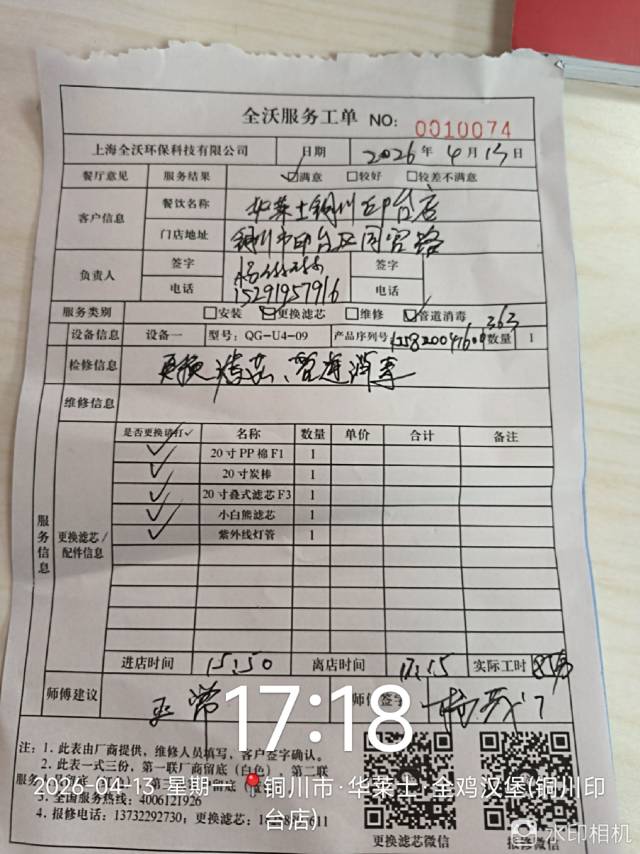 全沃服务工单 NO: 0010074
上海全沃环保科技有限公司 日期 2026年4月13日
餐厅意见 服务结果 ☑满意 □较好 □较差不满意
客户信息 餐饮名称 华莱士铜川印台店
门店地址 铜川市印台区同官路
负责人 签字 签字
电话 15291957916 电话
服务类别 □安装 ☑更换滤芯 □维修 ☑管道消毒
设备信息 设备一 型号: QG-U4-09 产品序列号 363 数量 1
检修信息 更换滤芯、管道消毒
维修信息
服务信息
更换滤芯/配件信息
是否更换请打✓ 名称 数量 单价 合计 备注
✓ 20寸PP棉F1 1
✓ 20寸炭棒 1
✓ 20寸叠式滤芯F3 1
✓ 小白熊滤芯 1
✓ 紫外线灯管 1
进店时间 15:50 离店时间 17:15 实际工时
师傅建议 正常 师傅签字
17:18
注: 1. 此表由厂商提供, 维修人员填写, 客户签字确认。
2. 此表一式三份, 第一联厂商留底(白色), 第二联
2026-04-13 星期一 铜川市·华莱士·全鸡汉堡(铜川印台店)
3. 全国服务热线: 4006121926
4. 报修电话: 13732292730; 更换滤芯:
更换滤芯微信 报修微信
水印相机